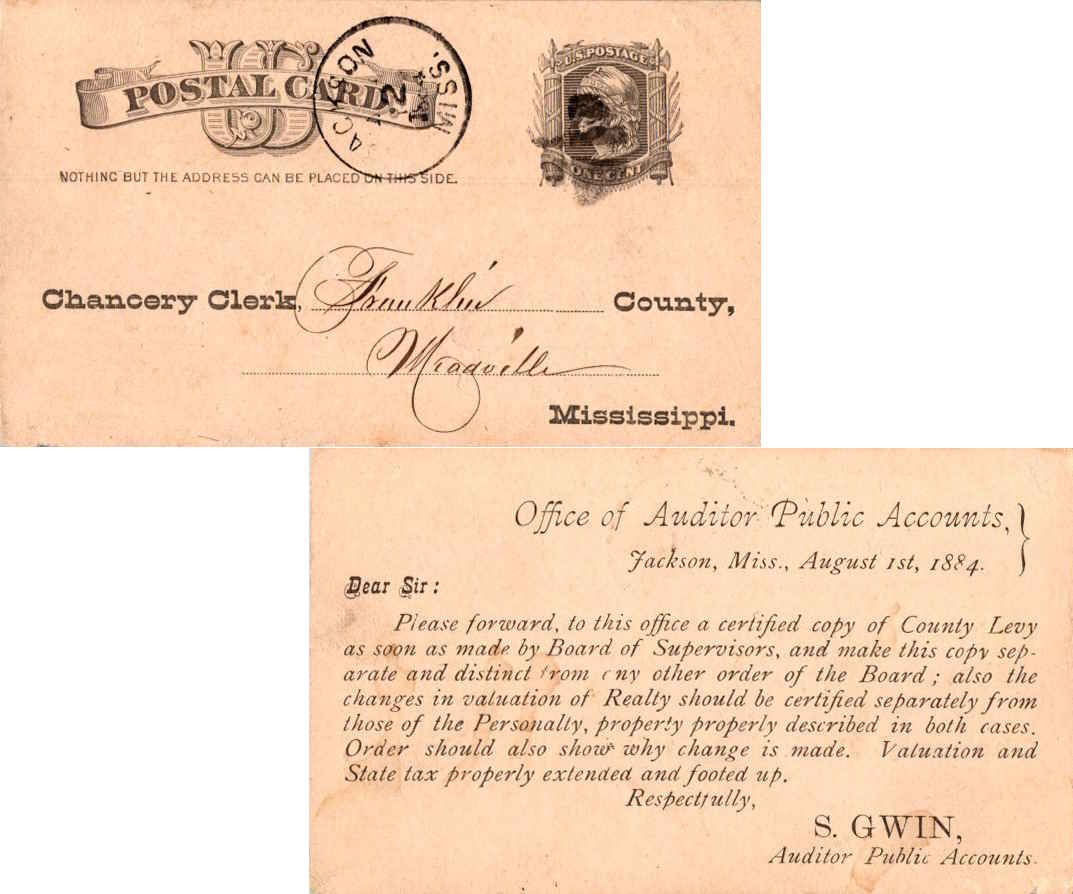 U S
POSTAL CARD
NOTHING BUT THE ADDRESS CAN BE PLACED ON THIS SIDE.
JACKSON MISS.
2
U.S. POSTAGE
ONE CENT
Chancery Clerk, Franklin County,
Meadville
Mississippi.
Office of Auditor Public Accounts,
Jackson, Miss., August 1st, 1884.
Dear Sir:
Please forward, to this office a certified copy of County Levy
as soon as made by Board of Supervisors, and make this copy sep-
arate and distinct from any other order of the Board; also the
changes in valuation of Realty should be certified separately from
those of the Personalty, property properly described in both cases.
Order should also show why change is made. Valuation and
State tax properly extended and footed up.
Respectfully,
S. GWIN,
Auditor Public Accounts.